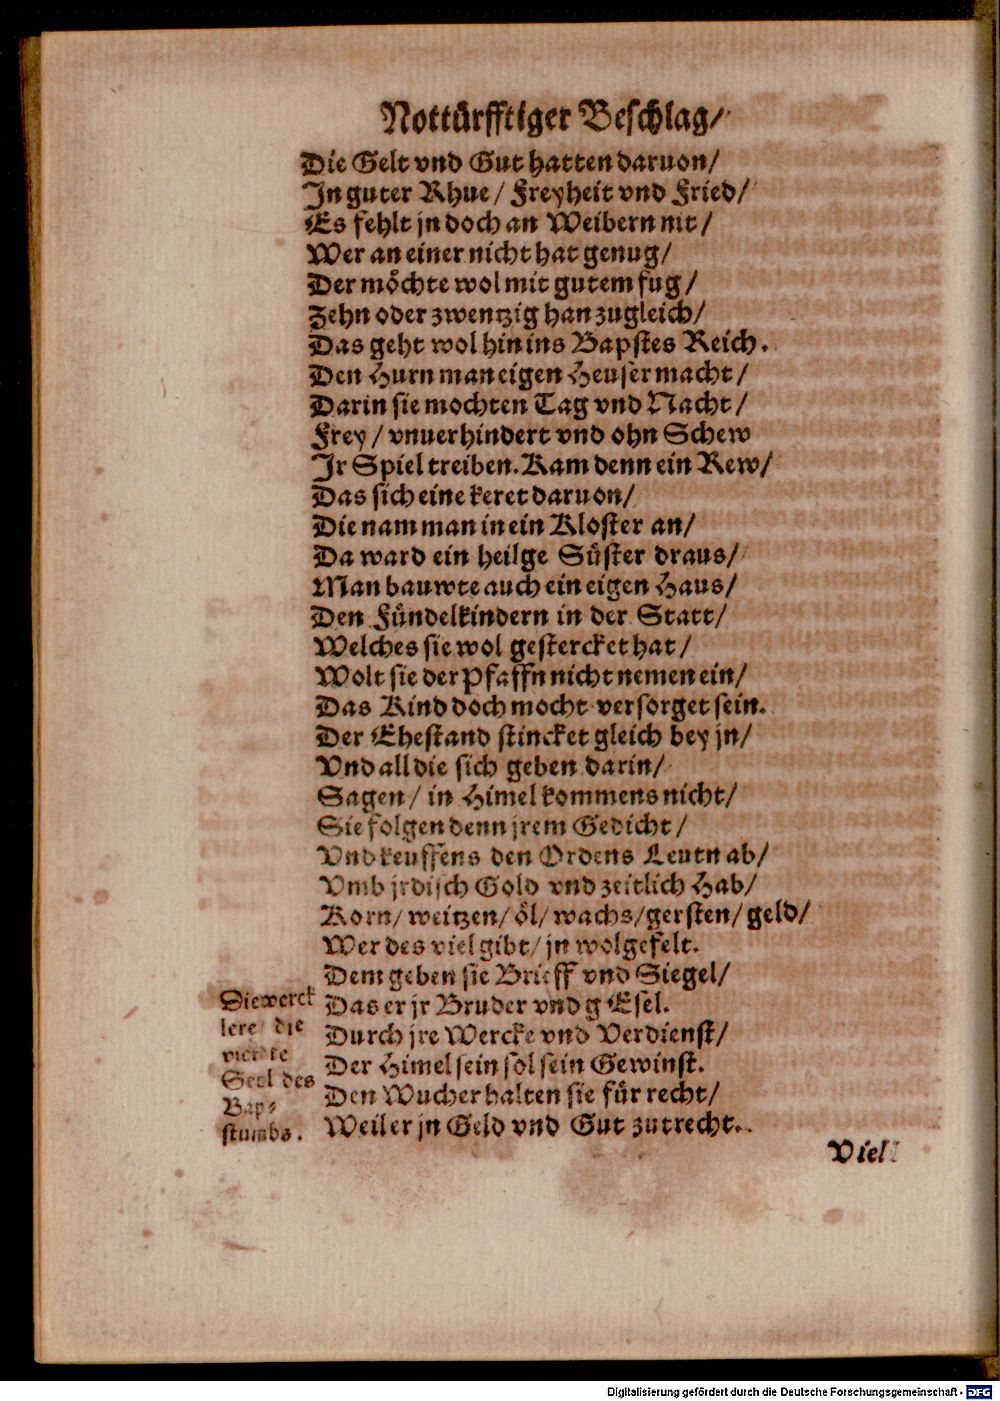 Nottürfftiger Beschlag/
Die Gelt vnd Gut hatten daruon/
In guter Rhue/ Freyheit vnd Fried/
Es fehlt jn doch an Weibern nit/
Wer an einer nicht hat genug/
Der möchte wol mit gutem fug/
Zehn oder zwentzig han zugleich/
Das geht wol hin ins Bapstes Reich.
Den Hurn man eigen Heuser macht/
Darin sie mochten Tag vnd Nacht/
Frey/ vnuerhindert vnd ohn Schew
Jr Spiel treiben. Kam denn ein Rew/
Das sich eine keret daruon/
Die nam man in ein Kloster an/
Da ward ein heilge Süster draus/
Man bauwte auch ein eigen Haus/
Den Fündelkindern in der Statt/
Welches sie wol gestercket hat/
Wolt sie der Pfaffn nicht nemen ein/
Das Kind doch mocht versorget sein.
Der Ehestand stincket gleich bey jn/
Vnd all die sich geben darin/
Sagen/ in Himel kommens nicht/
Sie folgen denn jrem Gedicht/
Vnd keuffens den Ordens Leutn ab/
Vmb jrdisch Gold vnd zeitlich Hab/
Korn/ weitzen/ öl/ wachs/ gersten/ geld/
Wer des viel gibt/ jn wolgefelt.
Dem geben sie Brieff vnd Siegel/
Das er jr Bruder vnd g Esel.
Durch jre Wercke vnd Verdienst/
Der Himel sein sol sein Gewinst.
Den Wucher halten sie für recht/
Weil er jn Geld vnd Gut zutrecht.
Die werck
lere die
vierte
Seel des
Bap⸗
stumbs.
Viel
Digitalisierung gefördert durch die Deutsche Forschungsgemeinschaft - DFG